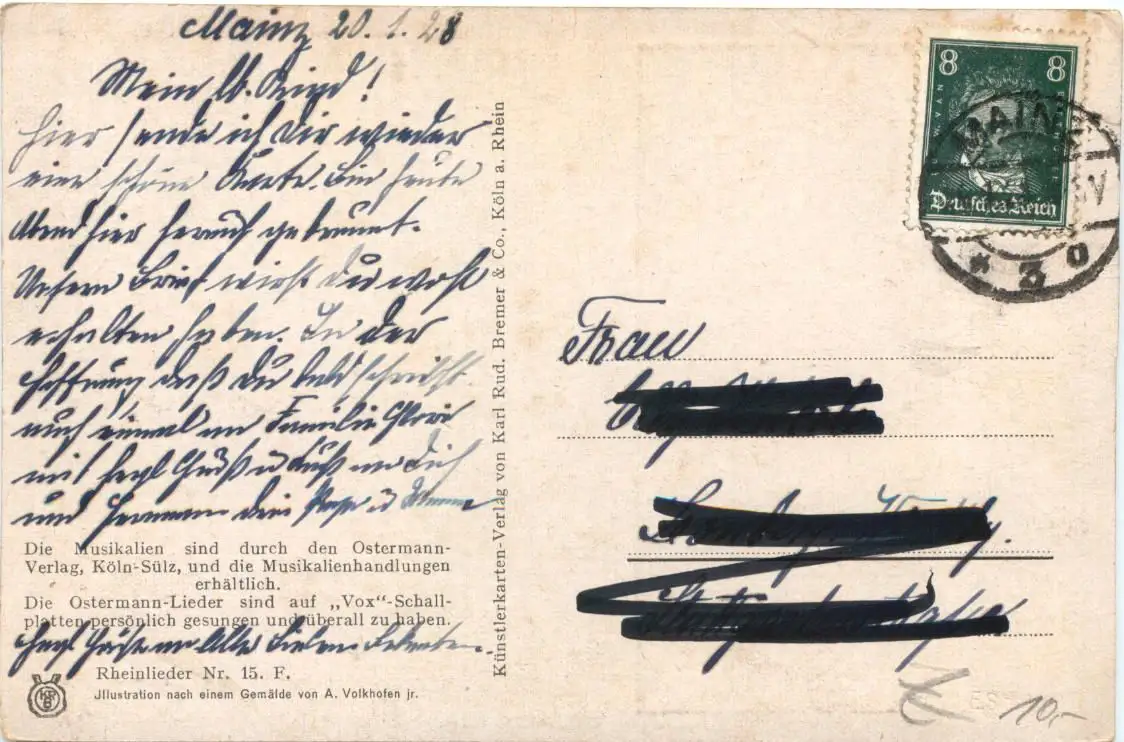 Mainz 20.1.28
Mein lb. Kind!
Hier sende ich Dir wieder
eine schöne Karte. Bin heute
Abend hier
Unseren Brief wirst Du wohl
erhalten haben. In der
Hoffnung daß Du bald schreibst
auch einmal an Familie
mit herzl Gruß u Kuß an Dich
und Hermann dein Papa u Mamma
Die Musikalien sind durch den Ostermann-
Verlag, Köln-Sülz, und die Musikalienhandlungen
erhältlich.
Die Ostermann-Lieder sind auf „Vox“-Schall-
platten persönlich gesungen und überall zu haben.
Herzl Grüße an Alle Lieben
Rheinlieder Nr. 15. F.
Jllustration nach einem Gemälde von A. Volkhofen jr.
KRB
Künstlerkarten-Verlag von Karl Rud. Bremer & Co., Köln a. Rhein
8 8
Deutsches Reich
MAINZ
* 3 o
Frau
10,-